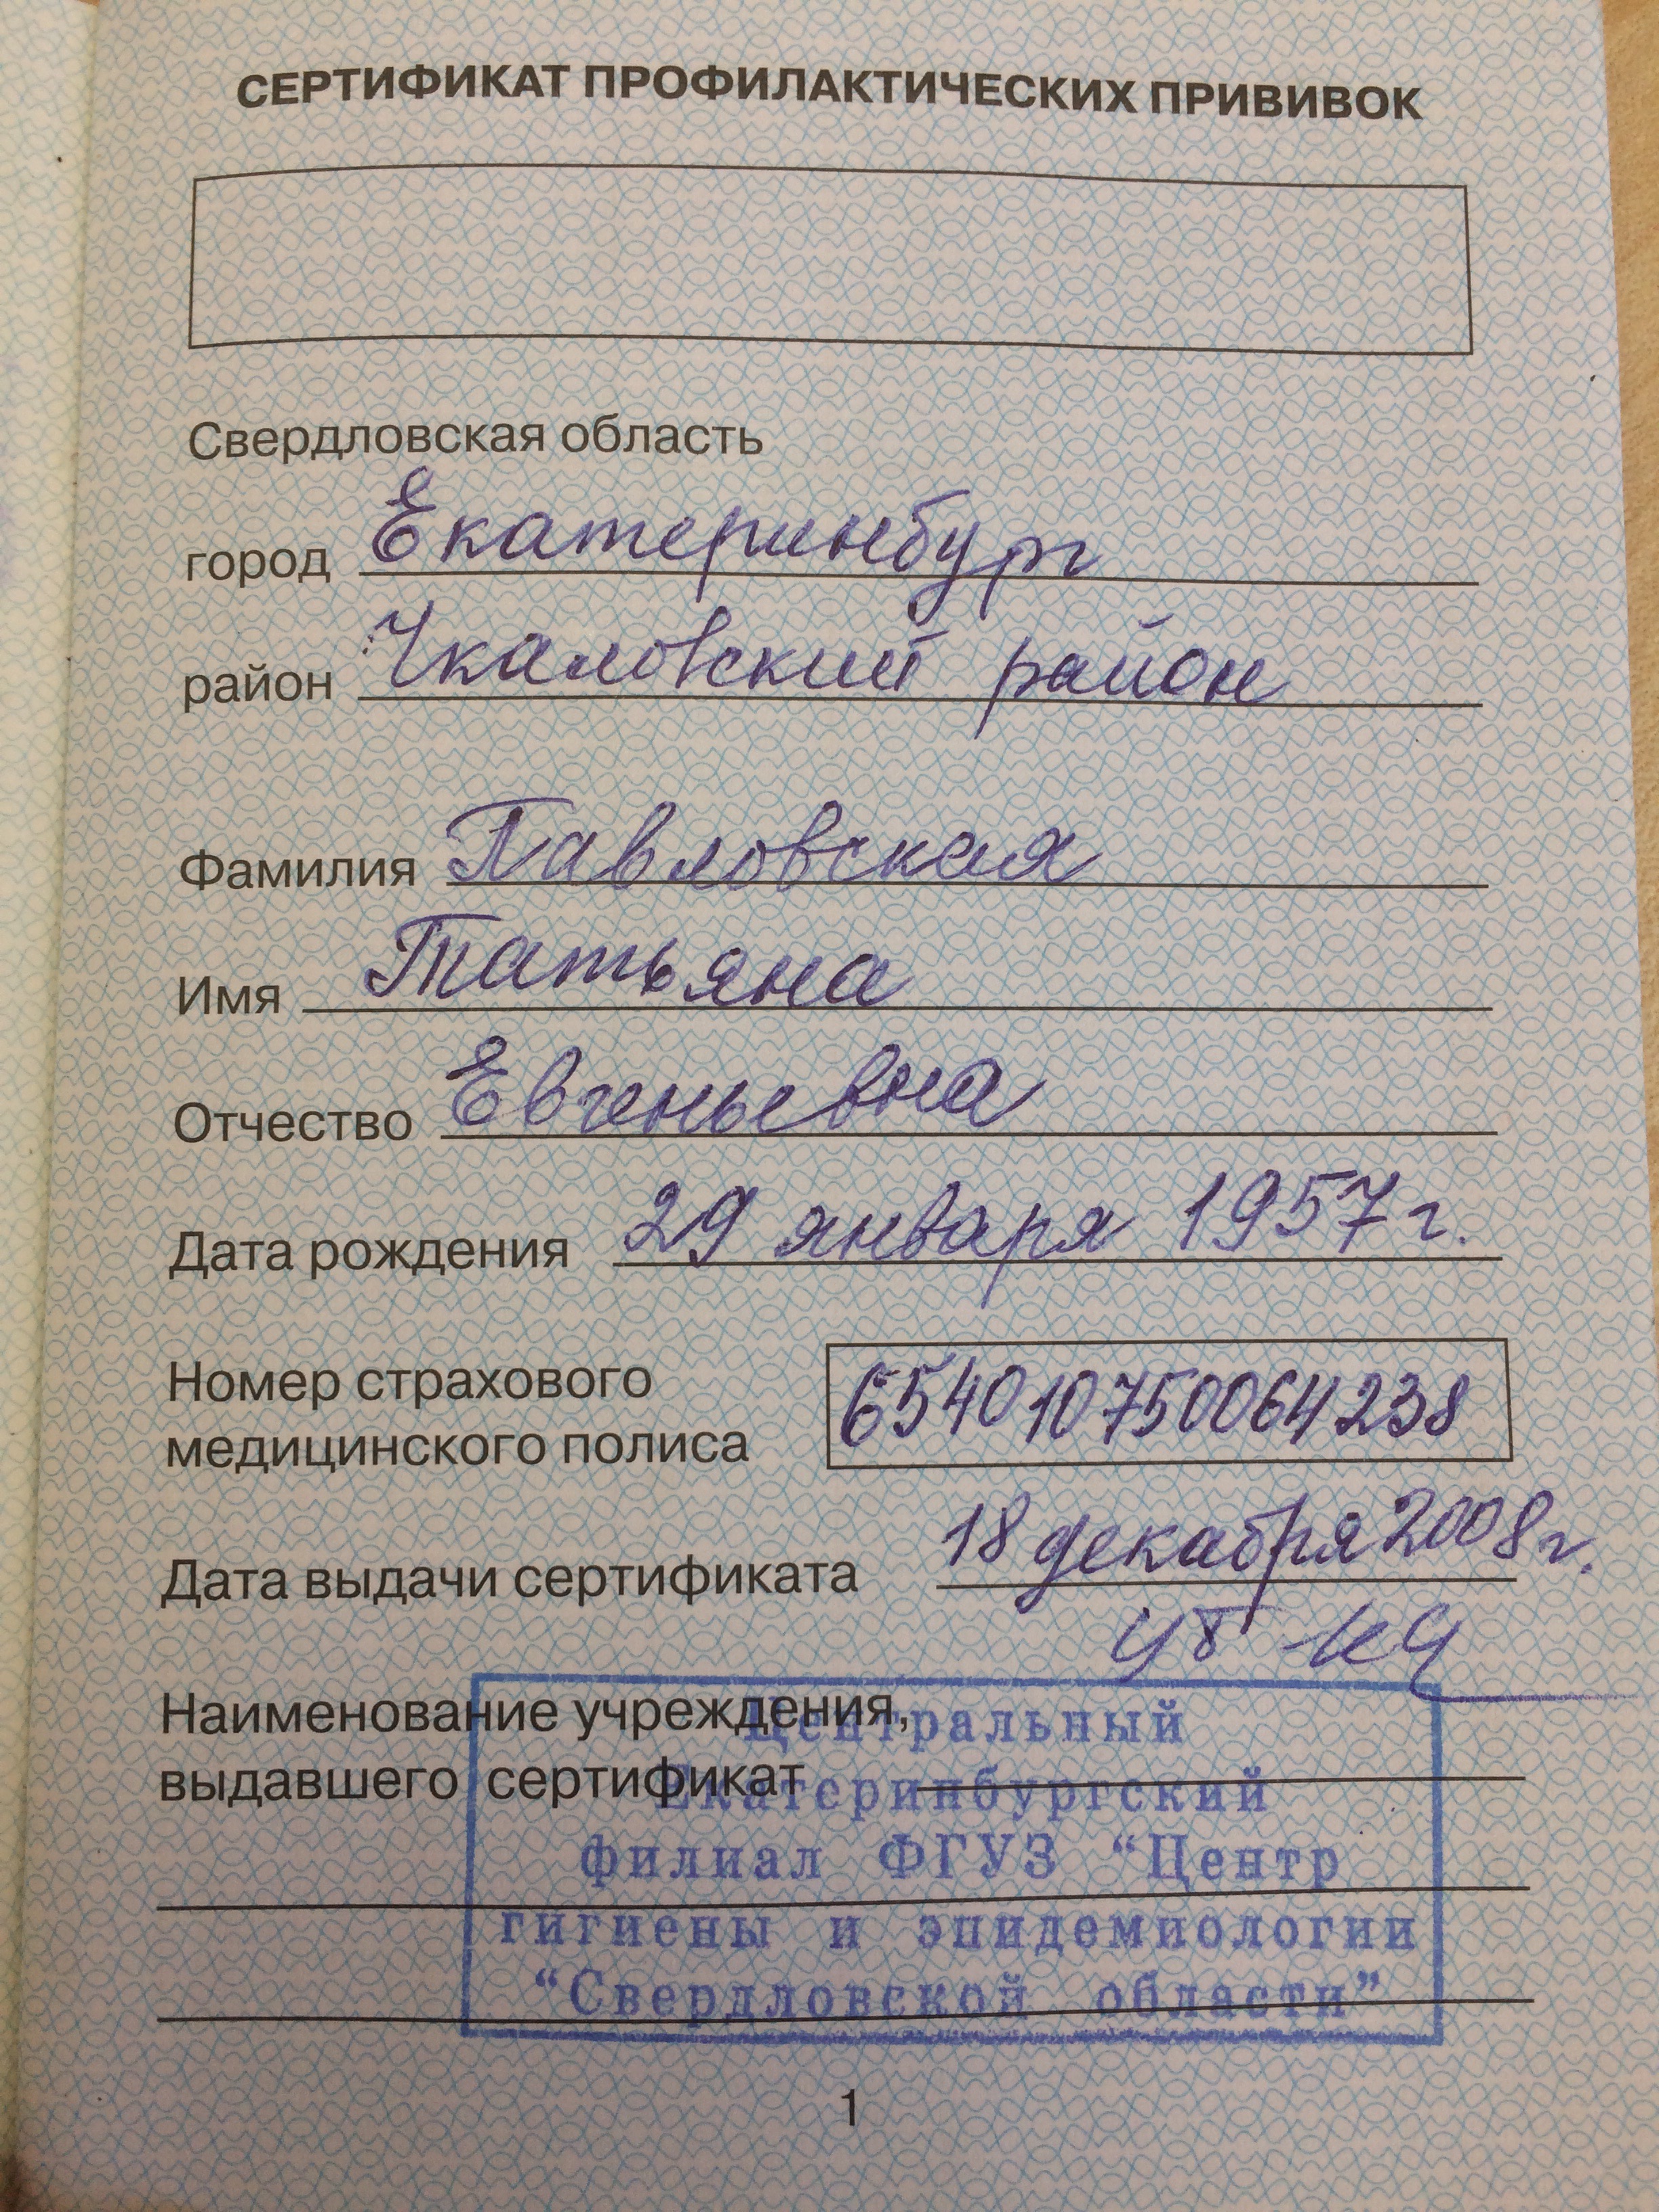 СЕРТИФИКАТ ПРОФИЛАКТИЧЕСКИХ ПРИВИВОК
Свердловская область
город Екатеринбург
район Чкаловский район
Фамилия Павловская
Имя Татьяна
Отчество Евгеньевна
Дата рождения 29 января 1957 г.
Номер страхового
медицинского полиса 654010750064238
Дата выдачи сертификата 18 декабря 2008 г.
Наименование учреждения,
выдавшего сертификат
Центральный
Екатеринбургский
филиал ФГУЗ "Центр
гигиены и эпидемиологии
"Свердловской области"
1